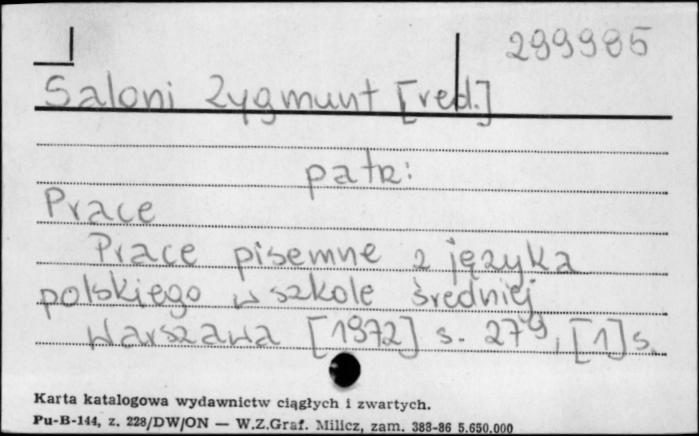 299985
Saloni Zygmunt [red.]
patrz:
Prace
Prace pisemne z języka
polskiego w szkole średniej
Warszawa [1972] s. 279, [1] s.
Karta katalogowa wydawnictw ciągłych i zwartych.
Pu-B-144, z. 228/DW/ON — W.Z.Graf. Milicz, zam. 388-86 5.650.000